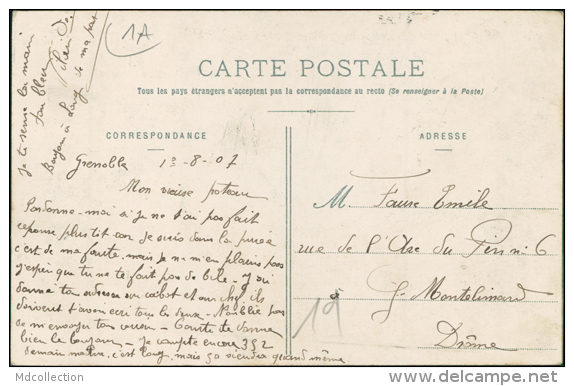 1A
CARTE POSTALE
Tous les pays étrangers n'acceptent pas la correspondance au recto (Se renseigner à la Poste)
CORRESPONDANCE
ADRESSE
Grenoble 1º-8-07
Mon vieux poteau
Pardonne-moi si je ne t'ai pas fait
reponse plus tit car je suis dans la purée
c'est de ma faute, mais je ne m'en plains pas
j'espère que tu ne te fait pas de bile. J'ai
donné ton adresse au cabot et au chef, ils
doivent t'avoir ecri tous les deux. N'oublie pas
de m'envoyer ton
bien le bonjour. Je compte encore 352
demain matin, c'est long, mais sa viendra quand même
Je te serre la main
Ton bleu
Bonjour à
de ma part
M. Faure Emile
rue de l'Ase du Pin n: 6
Montelimard
Drôme
19
Mdcollection
delcampe.net